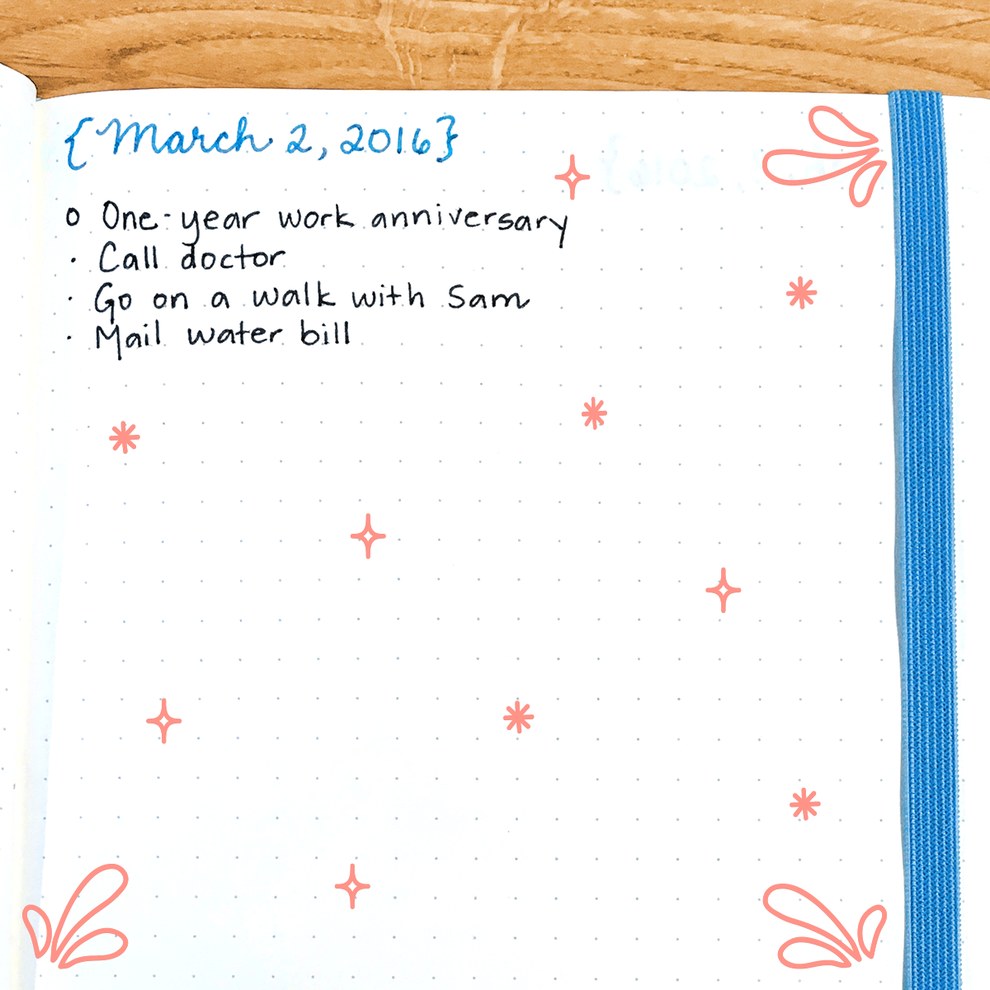 {March 2, 2016}
o One-year work anniversary
· Call doctor
· Go on a walk with Sam
· Mail water bill